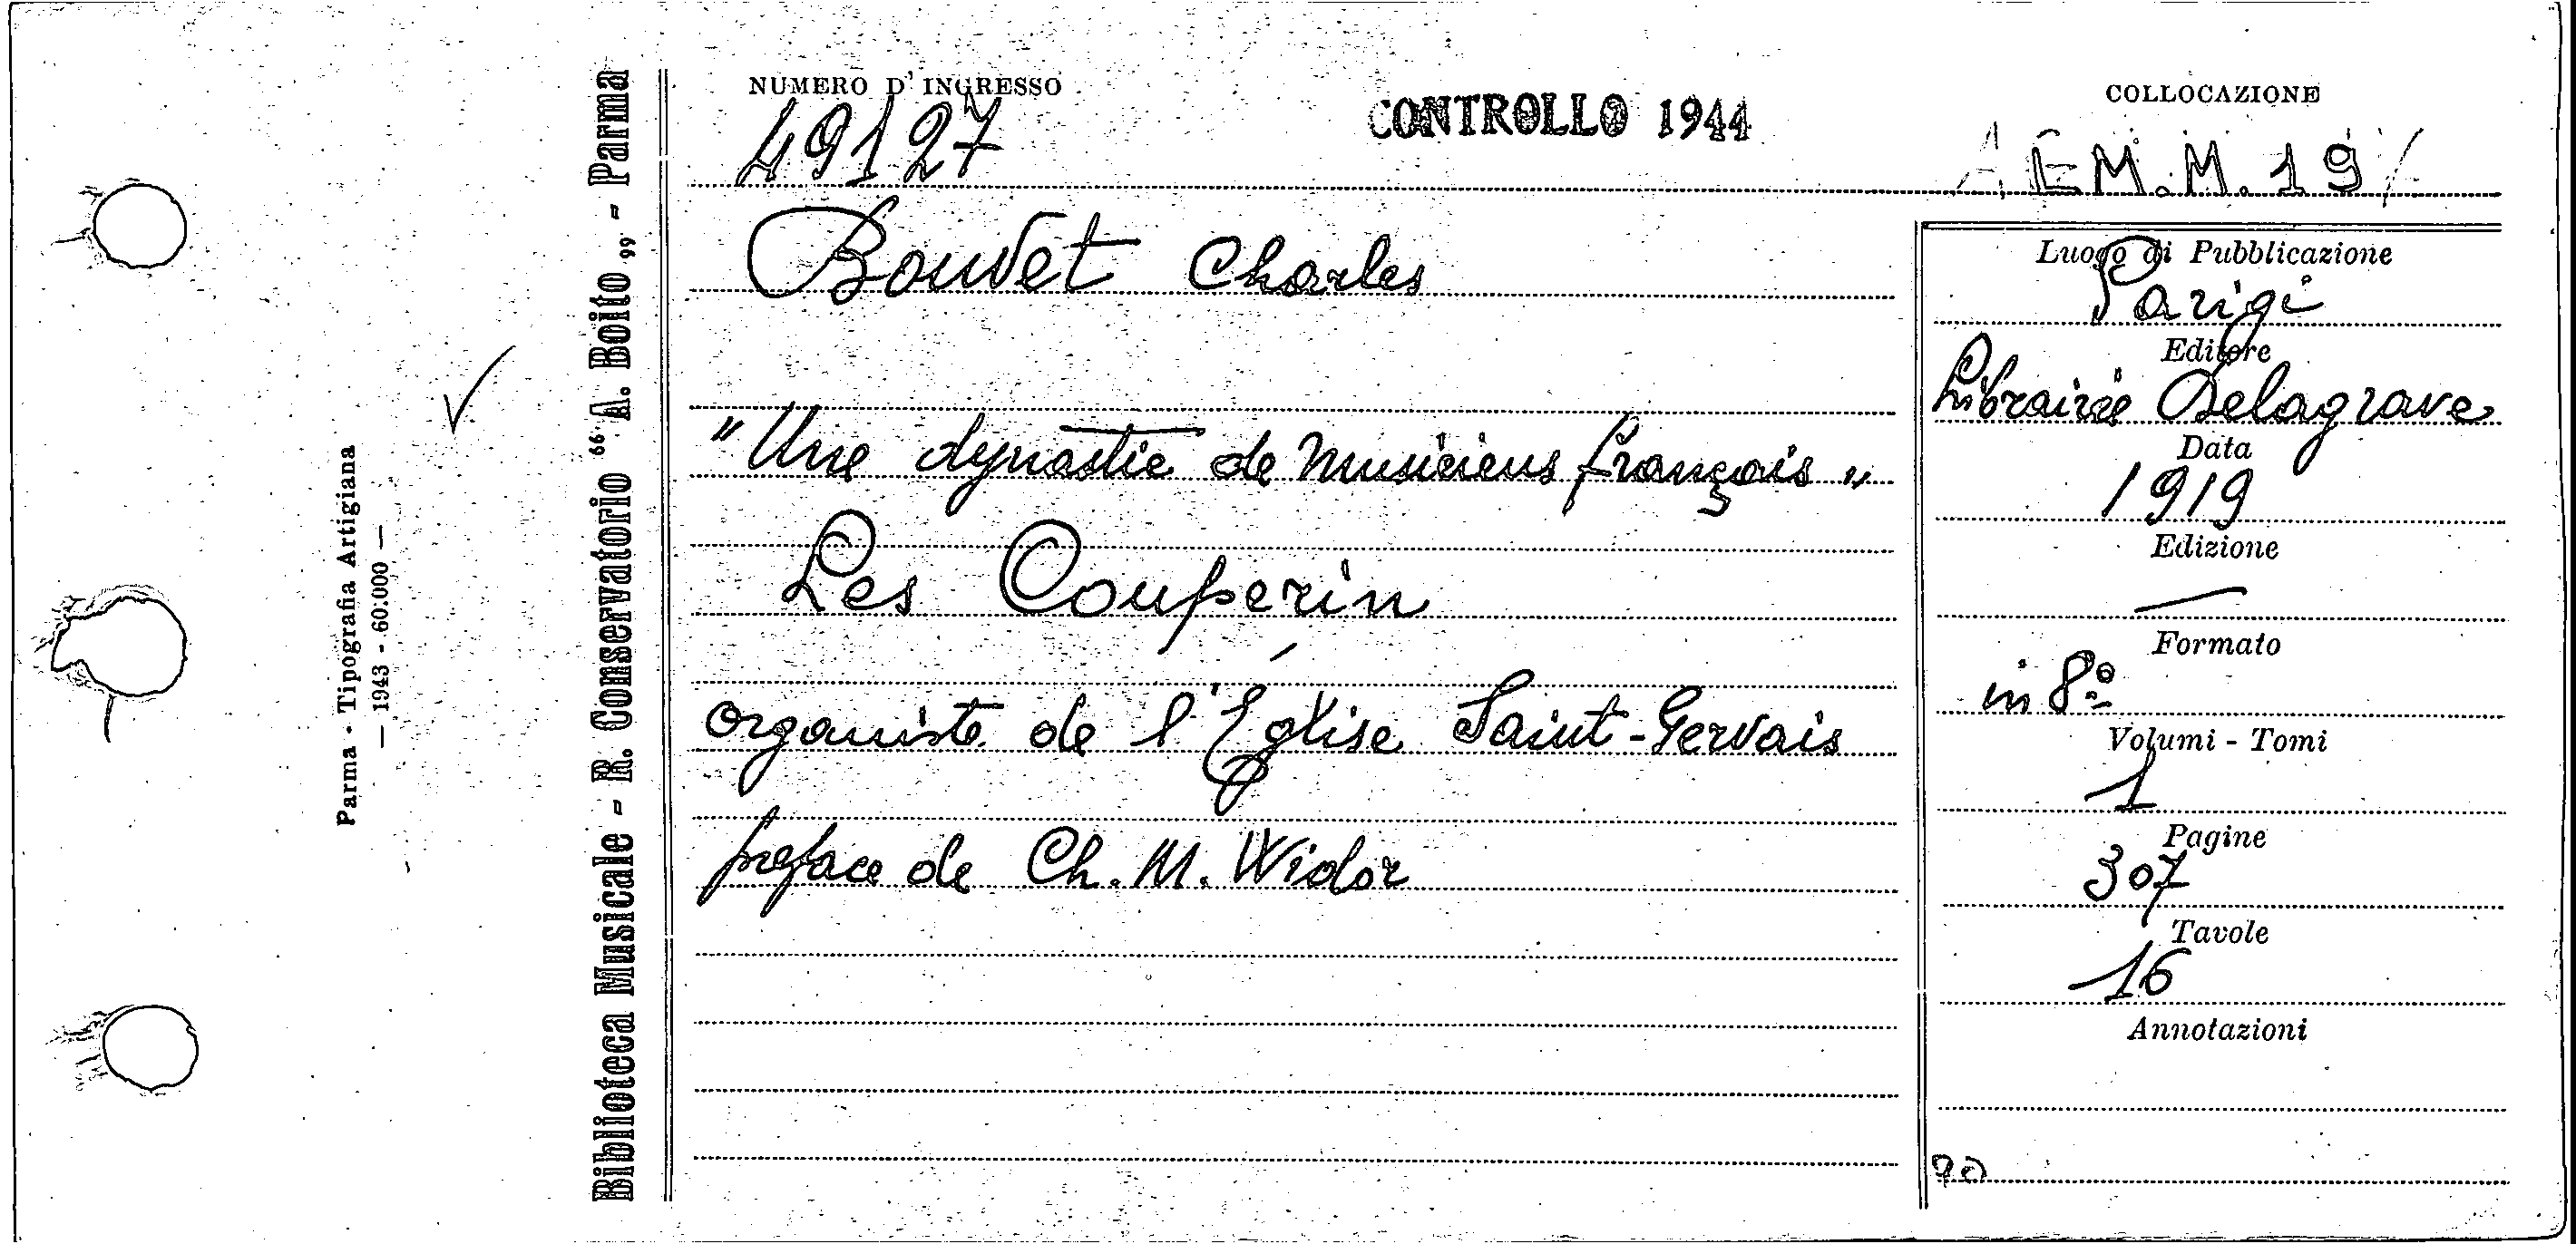 NUMERO D' INGRESSO
49127
CONTROLLO 1944
COLLOCAZIONE
M.M.19
Bouvet Charles
"Une dynastie de musiciens français„
Les Couperin
organiste de l'Eglise Saint-Gervais
preface de Ch. M. Widor
Luogo di Pubblicazione
Parigi
Editore
Librairie Delagrave
Data
1919
Edizione
—
Formato
in 8º
Volumi - Tomi
1
Pagine
307
Tavole
16
Annotazioni
Biblioteca Musicale - R. Conservatorio “ A. Boito „ - Parma
Parma - Tipografia Artigiana
— 1943 - 60.000 —